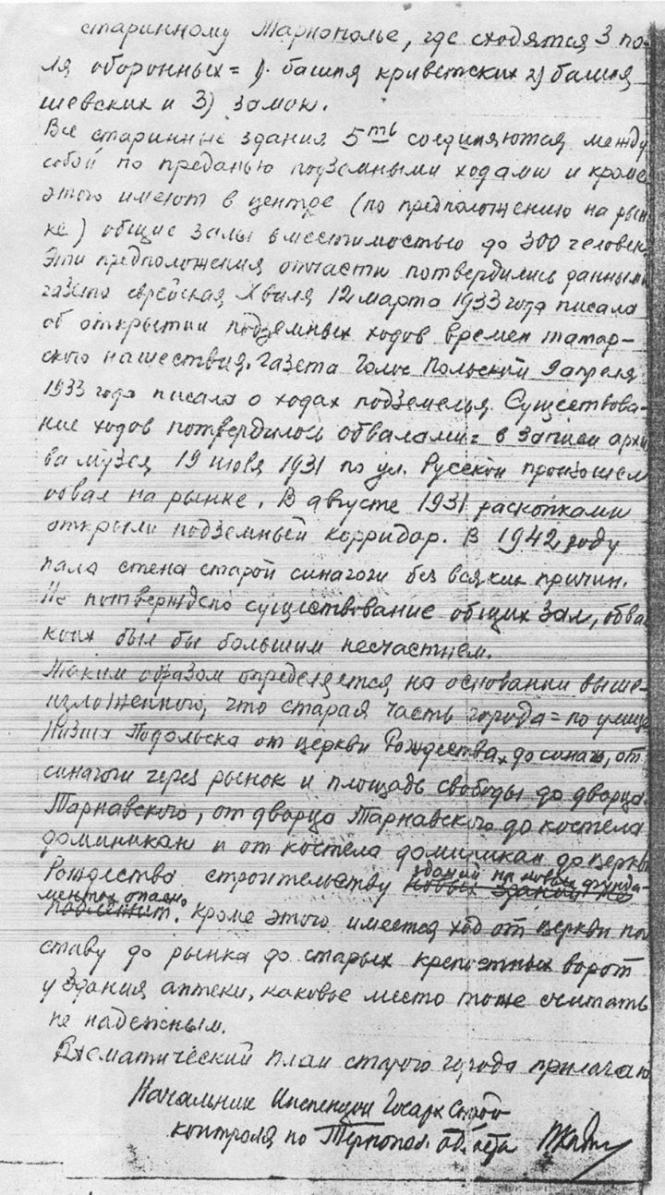 старинному Тарнополье, где сходятся 3 по-
ля оборонных = 1). башня криветских 2) башня
шевских и 3) замок.
Все старинные здания 5ть соединяются между
собой по преданью подземными ходами и кроме
этого имеют в центре (по предположению на рын
ке) общие залы вместимостью до 300 человек
Эти предположения отчасти потвердились данными
газета еврейская Хвиля 12 марта 1933 года писала
об открытии подземных ходов времен татар-
ского нашествия. Газета Голос Польский 9 апреля
1933 года писала о ходах подземелья. Существова-
ние ходов потвердилось обвалами: в записи архи
ва музея 19 июня 1931 по ул. Русской произошел
обвал на рынке. В августе 1931 раскопками
открыли подземный корридор. В 1942 году
пала стена старой синагоги без всяких причин.
Не потверждено существование общих зал, обва
коих был бы большим несчастьем.
Таким образом определяется на основании выше-
изложенного, что старая часть города = по улице
Низша Подольска от церкви Рождества, до синаг, от
синагоги через рынок и площадь свободы до дворца
Тарнавского, от дворца Тарнавского до костела
доминикан и от костела доминикан до церкви
Рождества строительству зданий на новых фунда-
ментах опасно. новых зданий не
подлежит. кроме этого имеется ход от церкви по
ставу до рынка до старых крепостных ворот
у здания аптеки, каковое место тоже считать
не надежным.
Схематический план старого города прилагаю
Начальник Инспекции Госарх Строй
контроля по Тернопол. обл.